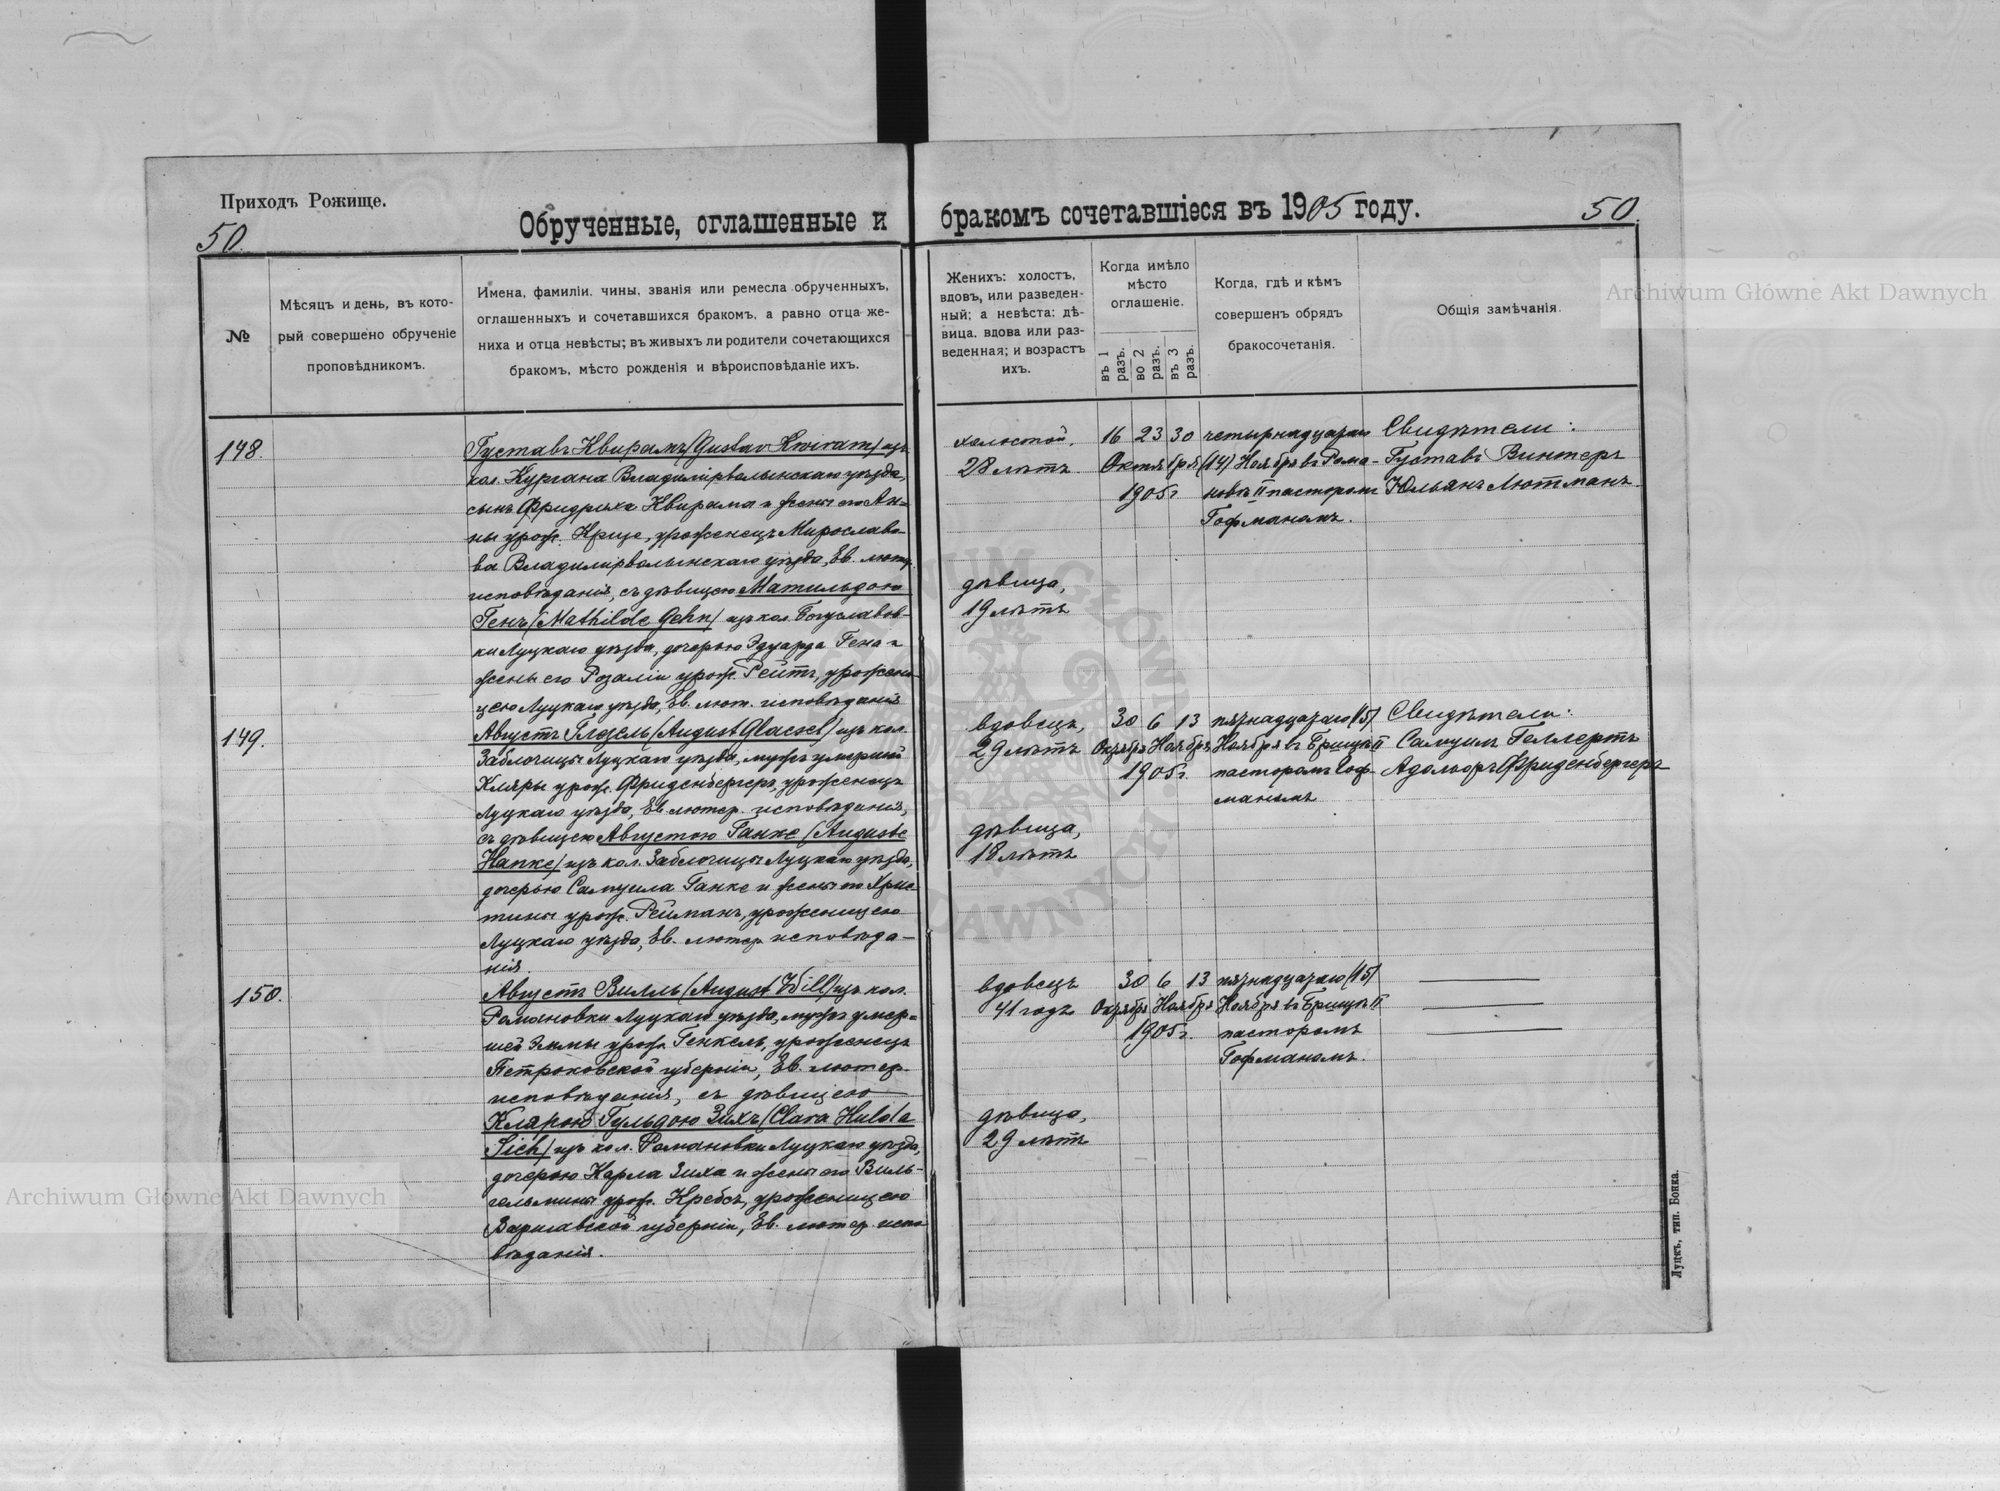 Приходъ Рожище.
50.
Обрученные, оглашенные и
бракомъ сочетавшіеся въ 1905 году.
50.
№
Мѣсяцъ и день, въ кото-
рый совершено обрученіе
проповѣдникомъ.
Имена, фамиліи, чины, званія или ремесла обрученныхъ,
оглашенныхъ и сочетавшихся бракомъ, а равно отца же-
ниха и отца невѣсты; въ живыхъ ли родители сочетающихся
бракомъ, мѣсто рожденія и вѣроисповѣданіе ихъ.
Женихъ: холостъ,
вдовъ, или разведен-
ный; а невѣста: дѣ-
вица, вдова или раз-
веденная; и возрастъ
ихъ.
Когда имѣло
мѣсто
оглашеніе.
въ 1 разъ.
во 2 разъ.
въ 3 разъ.
Когда, гдѣ и кѣмъ
совершенъ обрядъ
бракосочетанія.
Общія замѣчанія.
148.
Густавъ Квирамъ (Gustav Kwiram) изъ
кол. Кургана Владимірволынскаго уѣзда,
сынъ Фридриха Квирама и жены его Ан-
ны урож. Криге, уроженецъ Мирославо-
ва Владимірволынскаго уѣзда, Ев. лютер.
исповѣданія, съ дѣвицею Матильдою
Генъ (Mathilde Gehn) изъ кол. Богуславов-
ки Луцкаго уѣзда, дочерью Эдуарда Гена и
жены его Розаліи урож. Рейтъ, урожени-
цею Луцкаго уѣзда, Ев. лют. исповѣданія
холостой,
28 лѣтъ
дѣвица,
19 лѣтъ
16 23 30
Октября
1905 г
четырнадцатаго
(14) Ноября въ Рома-
новѣ II пасторомъ
Гофманомъ.
Свидѣтели:
Густавъ Винтеръ
Юльянъ Лютманъ
149.
Августъ Глэзель (August Glaesel) изъ кол.
Заблочицы Луцкаго уѣзда, мужъ умершей
Кляры урож. Фриденбергеръ, уроженецъ
Луцкаго уѣзда, Ев. лютер. исповѣданія,
съ дѣвицею Августою Ганке (Auguste
Hanke) изъ кол. Заблочицы Луцкаго уѣзда,
дочерью Самуила Ганке и жены его Хрис-
тины урож. Рейманъ, уроженицею
Луцкаго уѣзда, Ев. лютер. исповѣда-
нія.
вдовецъ,
29 лѣтъ
дѣвица,
18 лѣтъ
30 6 13
Октября Ноября
1905 г.
пятнадцатаго (15)
Ноября въ Брищѣ II
пасторомъ Гоф-
маномъ
Свидѣтели:
Самуилъ Геллертъ
Адольфъ Фриденбергеръ
150.
Августъ Вилль (August Will) изъ кол.
Романовки Луцкаго уѣзда, мужъ умер-
шей Эммы урож. Генкель, уроженецъ
Петроковской губерніи, Ев. лютер.
исповѣданія, съ дѣвицею
Клярою Гульдою Зихъ (Clara Hulda
Sich) изъ кол. Романовки Луцкаго уѣзда,
дочерью Карла Зиха и жены его Виль-
гельмины урож. Кребсъ, уроженицею
Варшавской губерніи, Ев. лютер. испо-
вѣданія.
вдовецъ
41 годъ
дѣвица,
29 лѣтъ
30 6 13
Октября Ноября
1905 г.
пятнадцатаго (15)
Ноября въ Брищѣ II
пасторомъ
Гофманомъ.
Луцкъ, тип. Бонка.
Archiwum Główne Akt Dawnych
Archiwum Główne Akt Dawnych